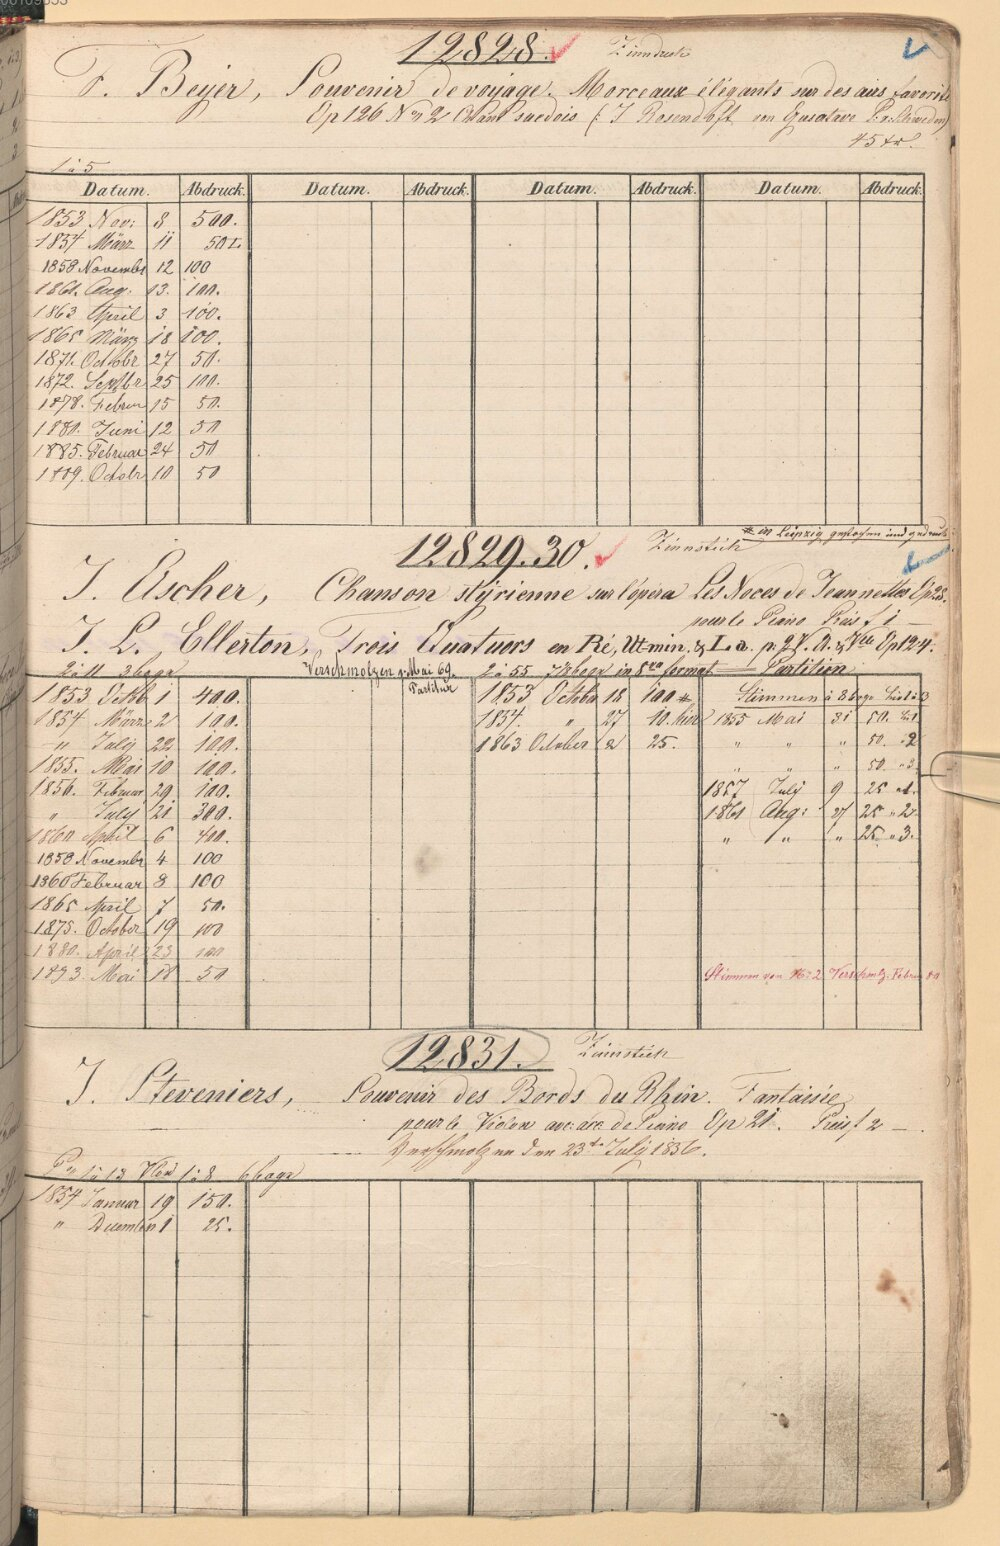 12828.
Zinndruck
F. Beyer, Souvenir de voyage. Morceaux élégants sur des airs favoris
Op 126 No 2 Chant suedois (: J Rosendoft von Gustave Pr: v: Schweden)
45 xr.
1 à 5
Datum. Abdruck. Datum. Abdruck. Datum. Abdruck. Datum. Abdruck.
1853 Nov: 8 500.
1854 März 11 50
1858 Novembr 12 100
1861. Aug. 13. 100.
1863 April 3 100.
1865 März 18 100.
1871. Octobr 27 50.
1872. Septbr 25 100.
1878. Februar 15 50.
1880. Juni 12 50
1885. Februar 24 50
1889. Octobr 10 50
* in Leipzig gestochen und gedruckt
12829.30.
Zinnstich
J. Ascher, Chanson styrienne sur l'opéra Les Noces de Jeannettes Op 28.
pour le Piano Preis f 1 —
J. L. Ellerton, Trois Quatuors en Ré, Ut-min. & La. p. 2 V. A. & Vlle Op 124.
2 à 11 3 bogn Verschmolzen p. Mai 69. Partitur 2 à 55 7 1/2 bogn in 8vo format — Partition
1853 Octbr 1 400. 1853 Octobr 18 100 * Stimmen à 8 bogn
1854 März 2 100. 1854. " 27 10. hier 1855 Mai 31 50. No 1
— " July 22 100. 1863 October 2 25. " " " 50. " 2
1855. Mai 10 100. " " " 50 " 3.
1856. Februar 29 100. 1857 July 9 25 " 1.
" July 21 300. 1861 Aug: 27 25 " 2.
1860 April 6 400. " " " 25. " 3.
1858 Novembr 4 100
1860 Februar 8 100
1865 April 7 50.
1875. October 19 100
1880. April 23 100
1893. Mai 18 50
Stimmen von No 1-2 Verschmlz. Februar 80
12831.
Zinnstich
J. Steveniers, Souvenir des Bords du Rhin. Fantaisie
pour le Violon avec acc de Piano Op 21. Preis f 2 —
Verschmolzen den 23t July 1856.
Pn 1 à 13 Vlon 1 à 8 6 bogn
1854 Januar 19 150.
" December 1 25.